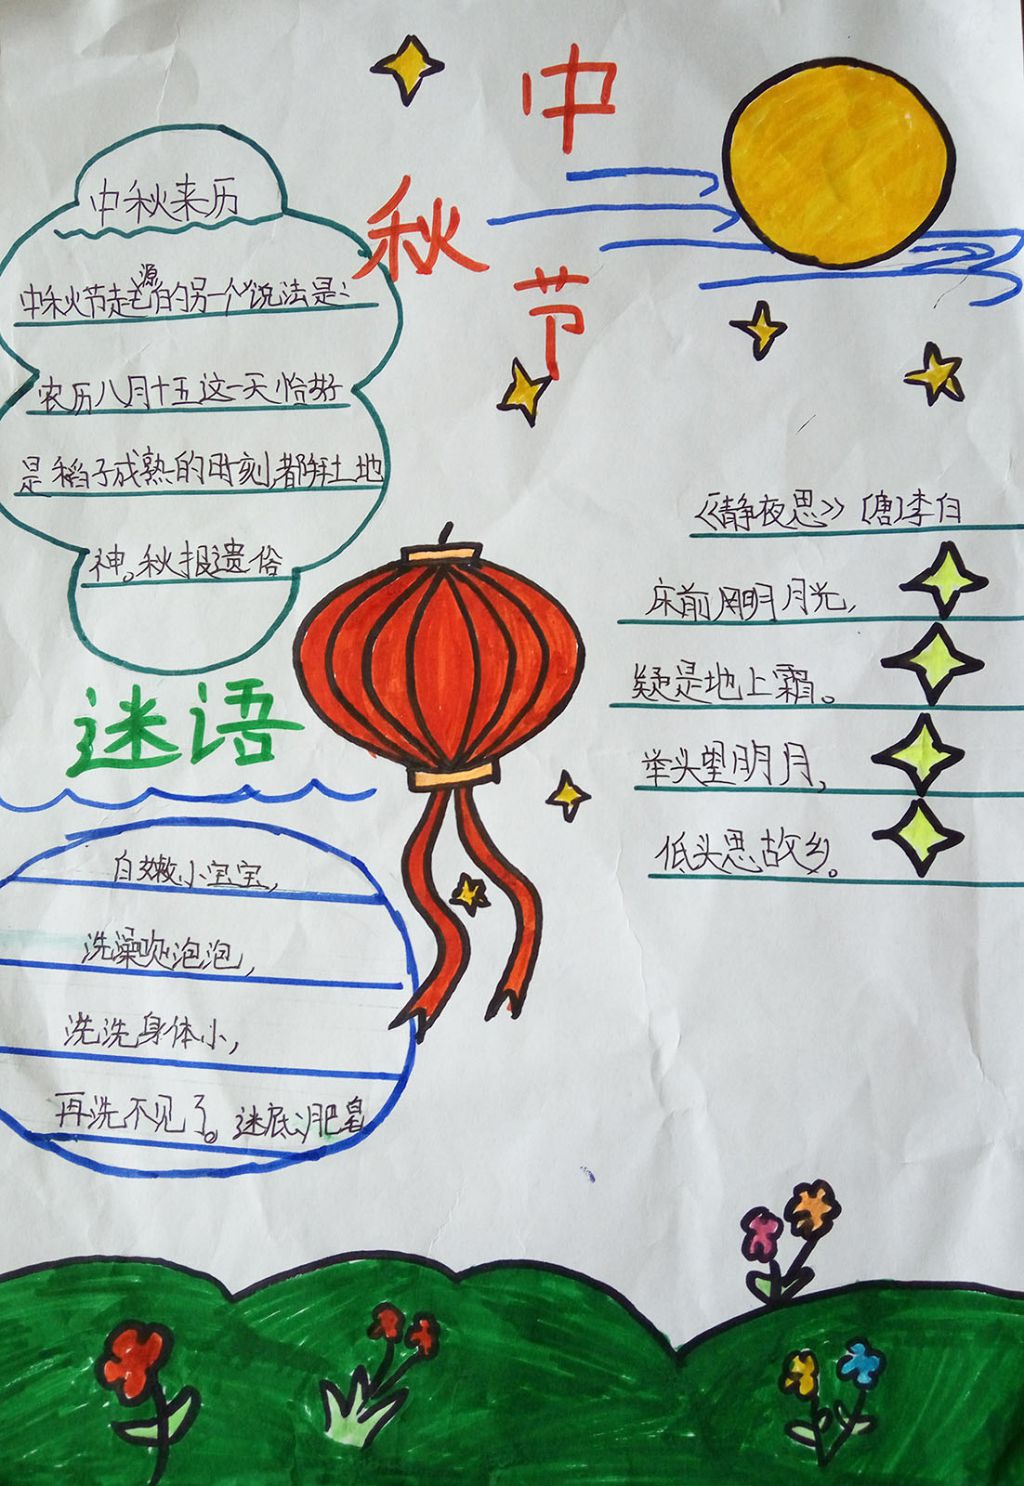 中秋节
中秋来历
中秋节起源的另一个说法是:
农历八月十五这一天恰好
是稻子成熟的时刻,都拜土地
神。秋报遗俗
《静夜思》〔唐〕李白
床前明月光,
疑是地上霜。
举头望明月,
低头思故乡。
迷语
白嫩小宝宝,
洗澡吹泡泡,
洗洗身体小,
再洗不见了。迷底:肥皂